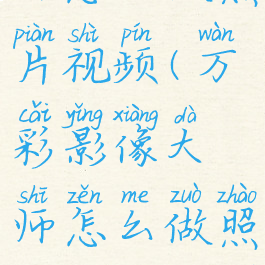 piàn shì pín wàn
片视频(万
cǎi yǐng xiàng dà
彩影像大
shī zěn me zuò zhào
师怎么做照